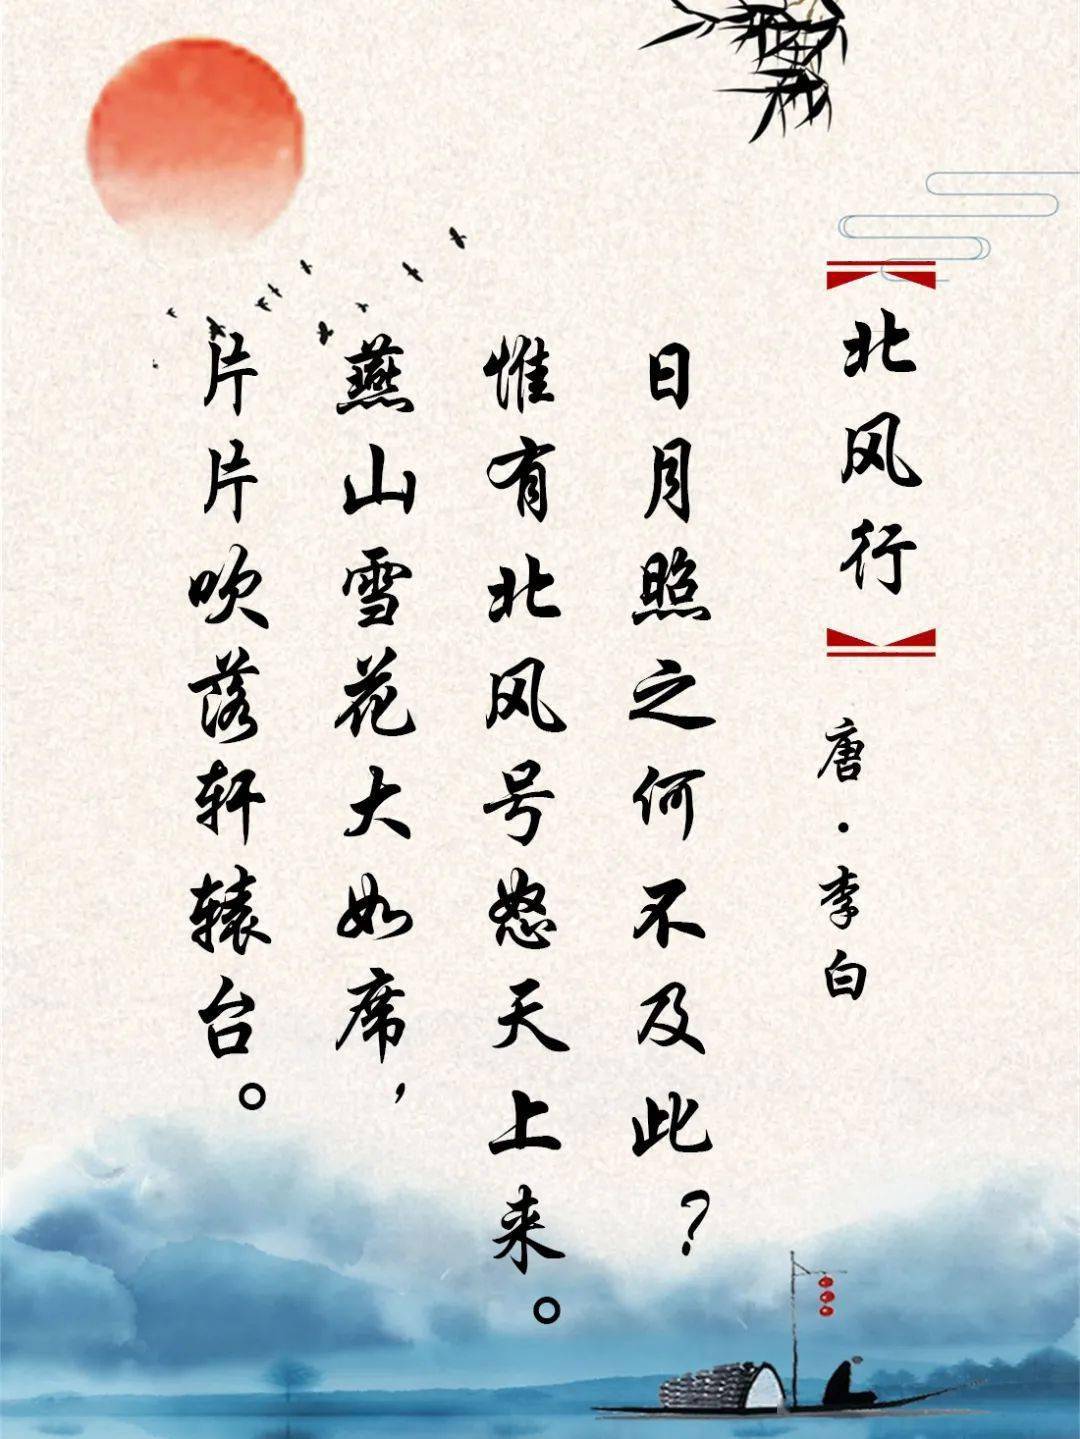 【北风行】
唐·李白
日月照之何不及此？
惟有北风号怒天上来。
燕山雪花大如席，
片片吹落轩辕台。